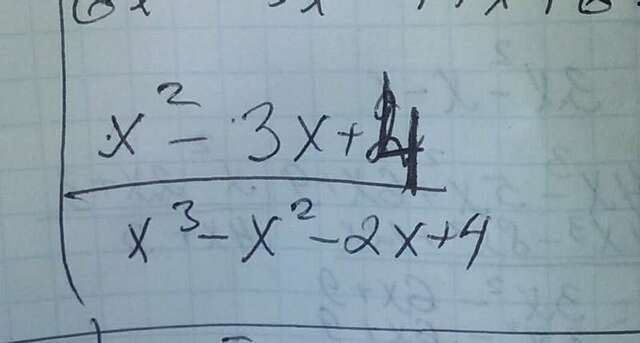 x² - 3x + 4
x³ - x² - 2x + 4